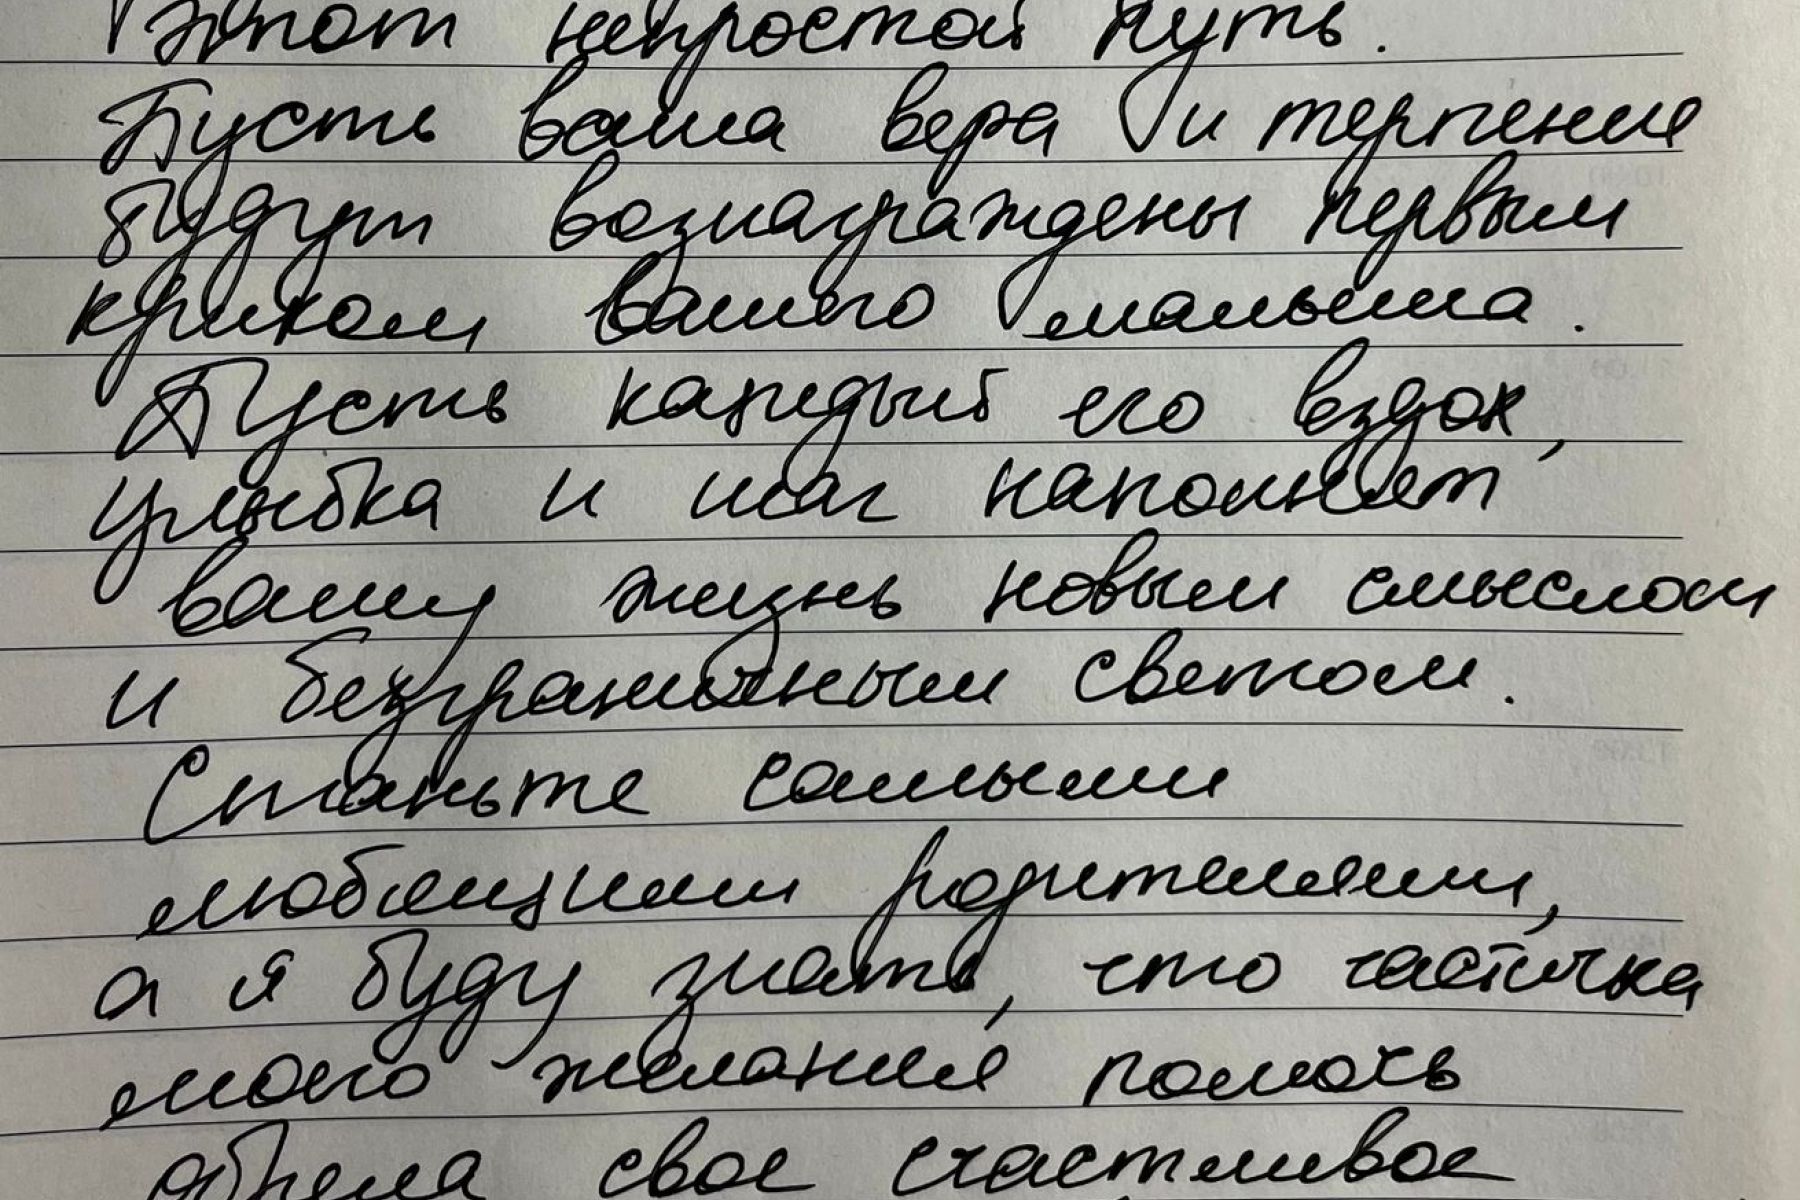 этот непростой путь.
Пусть ваша вера и терпение
будут вознаграждены первым
криком вашего малыша.
Пусть каждый его вздох,
улыбка и шаг наполняет
вашу жизнь новым смыслом
и безграничным светом.
Станьте самыми
любящими родителями,
а я буду знать, что частичка
моего желания помочь
обрела свое счастливое